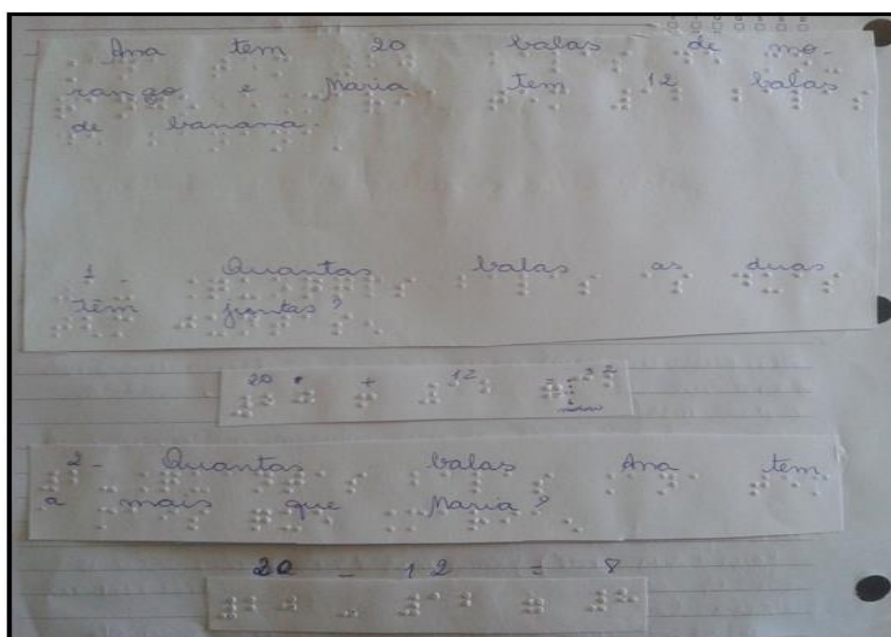 Ana tem 20 balas de mo-
rango e Maria tem 12 balas
de banana.
1 Quantas balas as duas
têm juntas?
20 + 12 = 32
2- Quantas balas Ana tem
a mais que Maria?
20 - 12 = 8